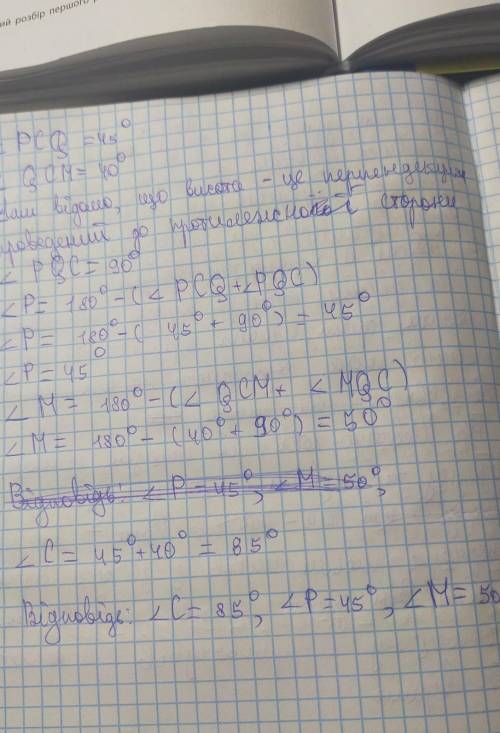 ий розбір першого
∠ PCQ = 45°
∠ QCM = 40°
Нам відомо, що висота - це перпендикуляр
проведений до протилежної сторони
∠ PQC = 90°
∠P = 180° - (∠ PCQ + ∠PQC)
∠P = 180° - ( 45° + 90°) = 45°
∠P = 45°
∠ M = 180° - (∠ QCM + ∠ MQC)
∠ M = 180° - (40° + 90°) = 50°
Відповідь: ∠ P = 45°, ∠ M = 50°,
∠ C = 45° + 40° = 85°
Відповідь: ∠C = 85°, ∠P = 45°, ∠M = 50